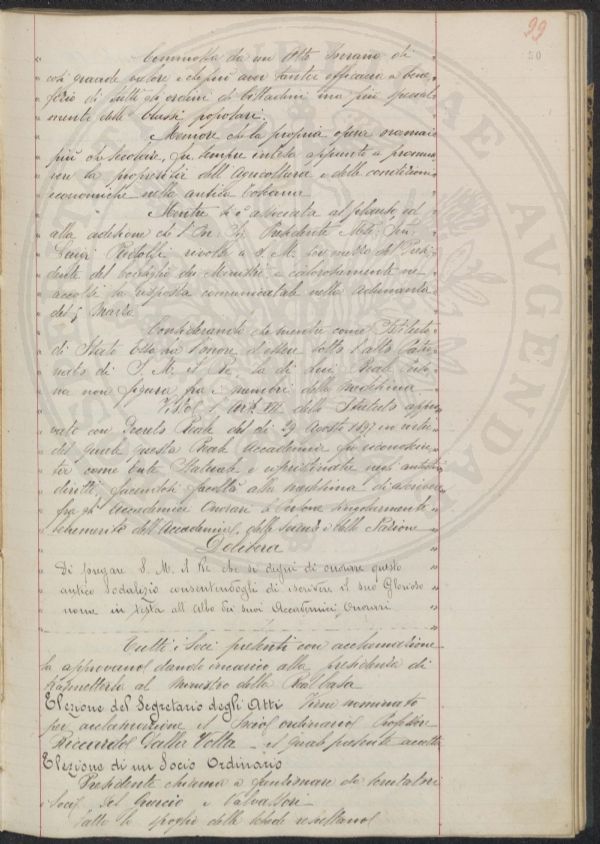 99
50
Commossa da un Atto Sovrano di
così grande valore e che può aver tanta efficacia a bene-
ficio di tutti gli ordini di Cittadini ma più special-
mente delle Classi popolari.
Memore che la propria opera oramai
più che secolare, fu sempre intesa appunto a promuo-
vere la prosperità dell'Agricoltura e delle condizioni
economiche nella antica Toscana
Mentre si è associata al plauso ed
alla adesione che l'On. Presidente
Luigi Ridolfi rivolse a S. M. per mezzo del Presi-
dente del Consiglio dei Ministri e calorosamente ne
accolse la risposta comunicatale nella adunanza
del 5 Marzo
Considerando che mentre come Istituto
di Stato Essa ha l'onore d'essere sotto l'alto Patro-
nato di S. M. il Re, la di Lui Real
non figura fra i membri della medesima
Visto l'Art. VII dello Statuto appro-
vato con Decreto Reale del dì 29 Agosto 1897 in virtù
del quale questa Reale Accademia fu riconosciu-
ta come Ente Statuale e ripristinata negli antichi
diritti, facendosi facoltà alla medesima di ascrivere
fra gli Accademici Onorari le Persone singolarmente
benemerite dell'Accademia, delle scienze e della Nazione
Delibera
Di pregare S. M. il Re che si degni di onorare questo
antico Sodalizio consentendogli di iscrivere il suo Glorioso
nome in testa all'Albo dei suoi Accademici Onorari.
Tutti i Soci presenti con acclamazione
la approvano dando incarico alla presidenza di
trasmetterla al Ministro della Real Casa
Elezione del Segretario degli Atti Viene nominato
per acclamazione il Socio ordinario Professore
Riccardo Dalla Volta il quale presente accetta
Elezione di un Socio Ordinario
Presidente chiama a funzionare da scrutatori
i Soci Del Guercio e Valvassori
Fatto lo spoglio delle schede resultano